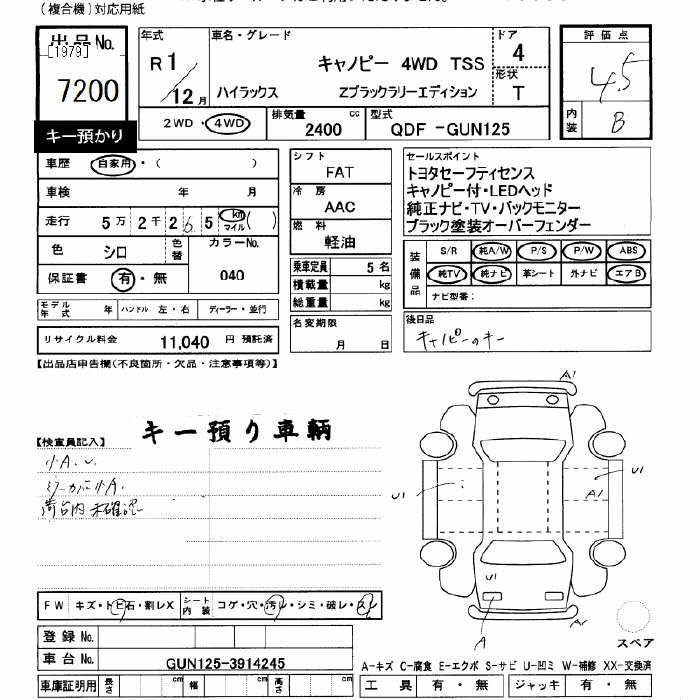 (複合機)対応用紙
出品No.
[1979]
7200
キー預かり
年式
R 1/12 月
車名・グレード
キャノピー 4WD TSS
ハイラックス Zブラックラリーエディション
ドア
4
形状
T
評価点
4.5
内装
B
2WD・4WD
排気量
2400 cc
型式
QDF -GUN125
車歴 自家用・( )
車検 年 月
走行 5万 2千 2 6 5 km マイル ( )
色 シロ
色替
カラーNo.
040
保証書 有・無
モデル年式 年 ハンドル 左・右 ディーラー・並行
リサイクル料金 11,040 円 預託済
シフト
FAT
冷房
AAC
燃料
軽油
乗車定員 5 名
積載量 kg
総重量 kg
名変期限
月 日
セールスポイント
トヨタセーフティセンス
キャノピー付・LEDヘッド
純正ナビ・TV・バックモニター
ブラック塗装オーバーフェンダー
装備品
S/R 純A/W P/S P/W ABS
純TV 純ナビ 革シート 外ナビ エアB
ナビ型番:
後日品
キャノピーのキー
【出品店申告欄(不良箇所・欠品・注意事項等)】
キー預り車輌
【検査員記入】
小A.U.
ミラーカバー小A.
荷台内未確認
A1
U1
U1
A1
U1
A
A1
スペア
FW キズ・トビ石・割レX
シート内装 コゲ・穴・汚レ・シミ・破レ・スレ
登録No.
車台No. GUN125-3914245
車庫証明用 長さ cm 幅 cm 高さ cm
A-キズ C-腐食 E-エクボ S-サビ U-凹ミ W-補修 XX-交換済
工具 有・無 ジャッキ 有・無